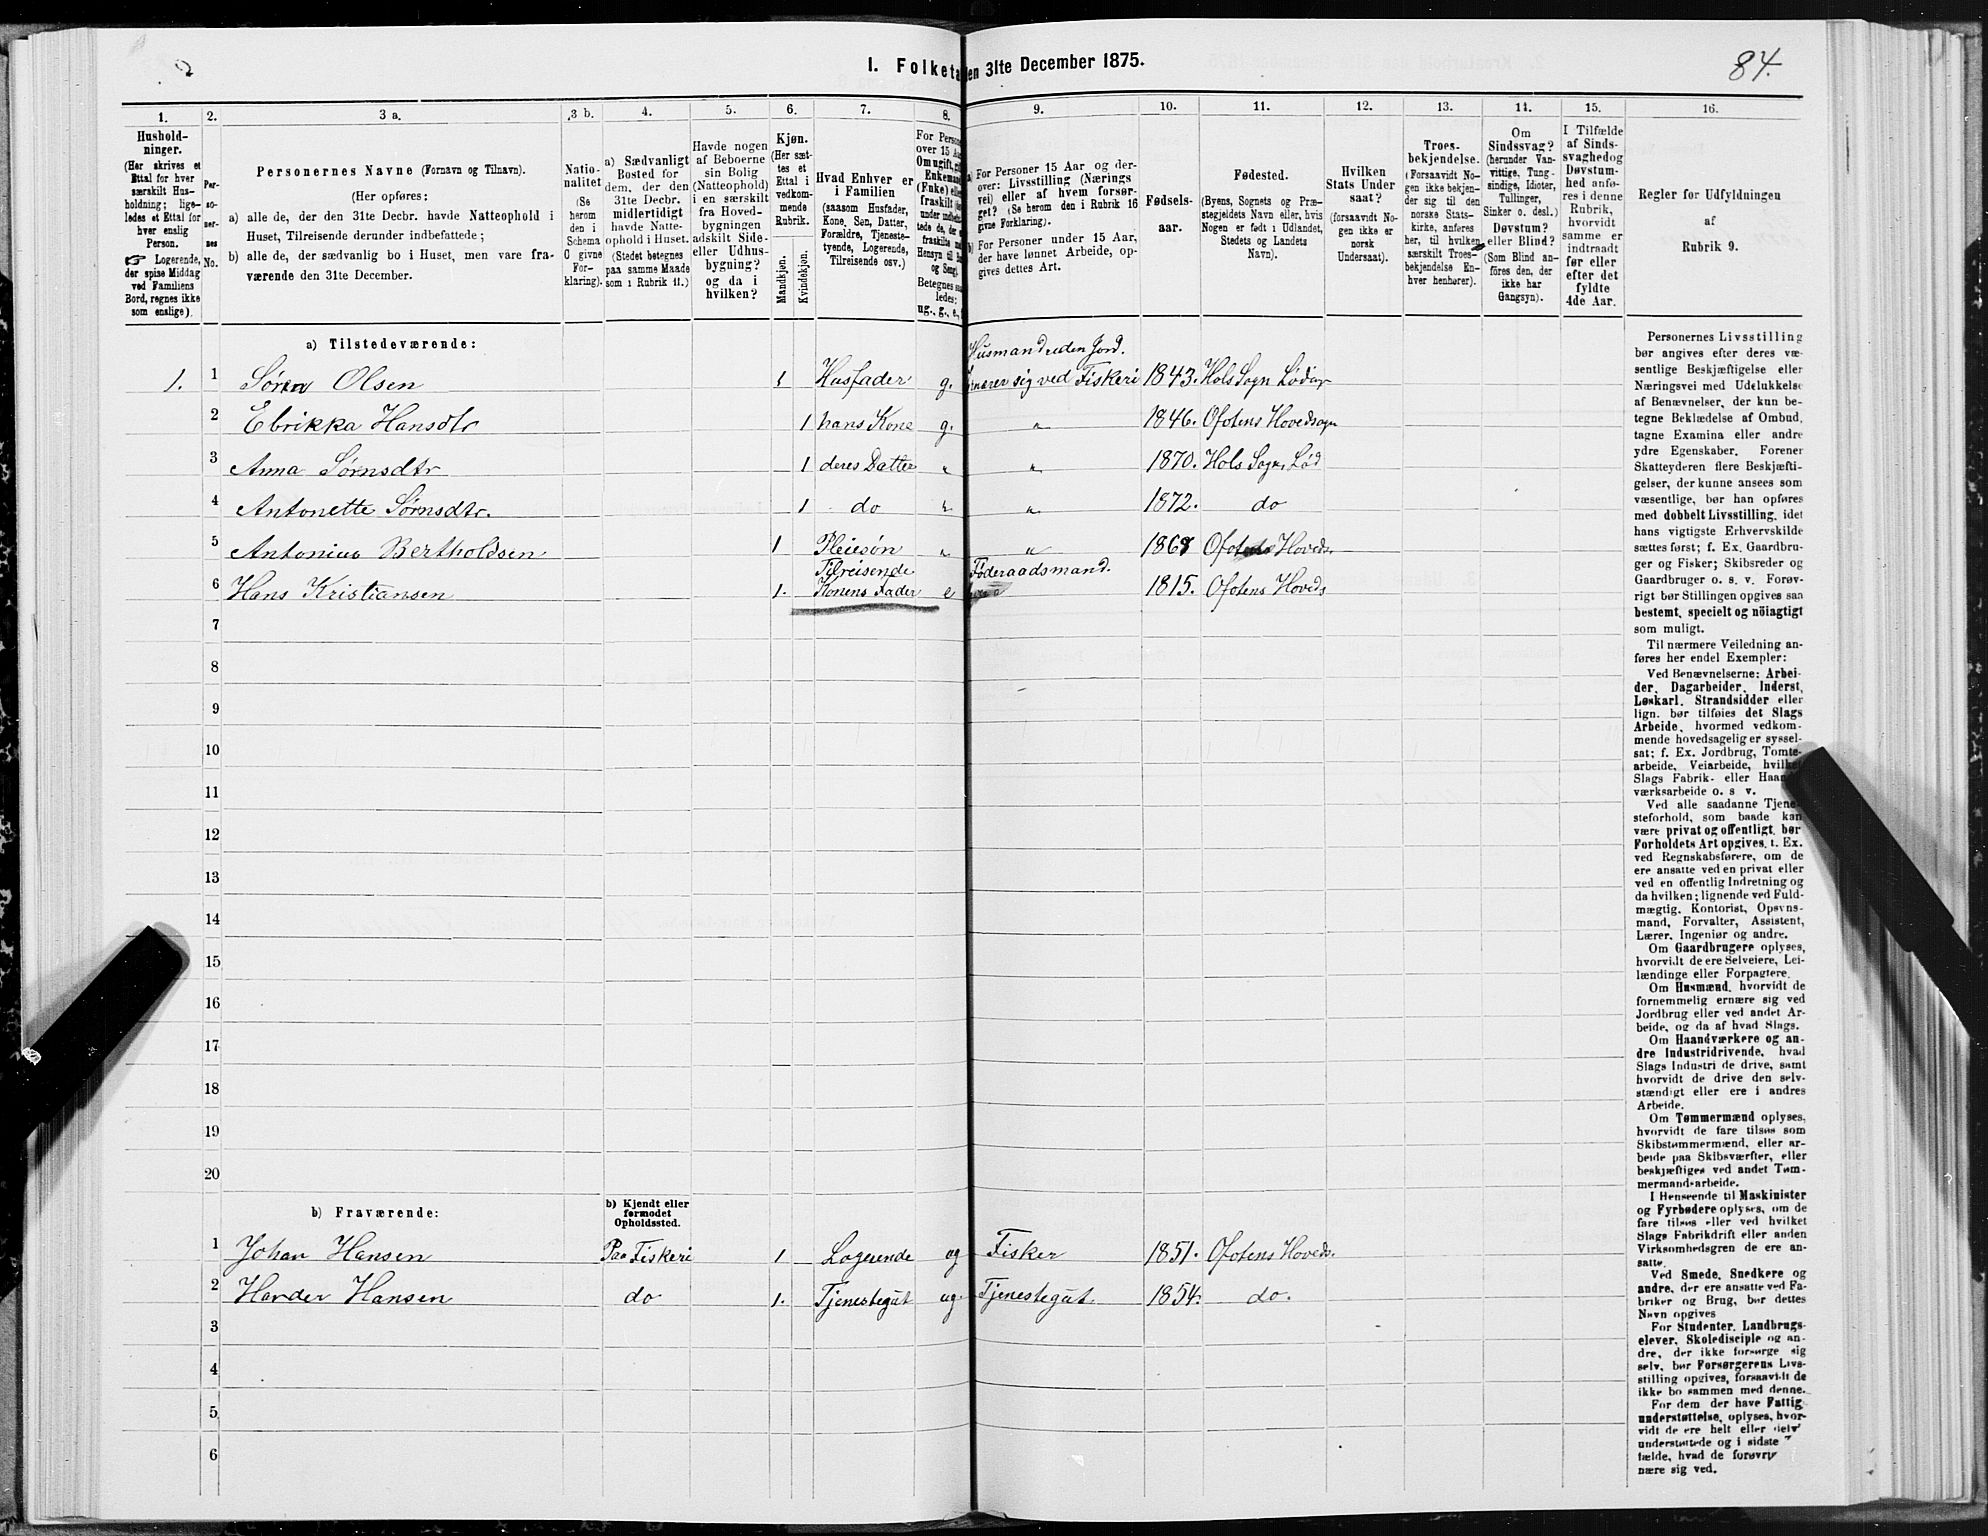 I. Folketa en 31te December 1875.
84.
1. 2. 3 a. 3 b. 4. 5. 6. 7. 8. 9. 10. 11. 12. 13. 14. 15. 16.
Hushold-
ninger.
(Her skrives et
Ettal for hver
særskilt Hus-
holdning; lige-
ledes et Ettal for
hver enslig
Person.
☞ Logerende,
der spise Middag
ved Familiens
Bord, regnes ikke
som enslige).
Per-
so-
ner-
nes
No.
Personernes Navne (Fornavn og Tilnavn).
(Her opføres:
a) alle de, der den 31te Decbr. havde Natteophold i
Huset, Tilreisende derunder indbefattede;
b) alle de, der sædvanlig bo i Huset, men vare fra-
værende den 31te December.
Natio-
nalitet
(Se
herom
den i
Schema
O givne
For-
klaring).
a) Sædvanligt
Bosted for
dem, der den
31te Decbr.
midlertidigt
havde Natte-
ophold i Huset.
(Stedet betegnes
paa samme Maade
som i Rubrik 11.)
Havde nogen
af Beboerne
sin Bolig
(Natteophold)
i en særskilt
fra Hoved-
bygningen
adskilt Side-
eller Udhus-
bygning?
og da i
hvilken?
Kjøn.
(Her sæt-
tes et
Ettal i
vedkom-
mende
Rubrik.
Mandkjøn.
Kvindekjøn.
Hvad Enhver er
i Familien
(saasom Husfader,
Kone, Søn, Datter,
Forældre, Tjeneste-
tyende, Logerende,
Tilreisende osv.)
For Person
over 15 Aa
Om ugift, gif
Enkeman
(Fnke) elle
fraskilt
Hensyn til
og Seng).
Betegnes
ledes:
ug., g., e.,
a) For Personer 15 Aar og der-
over: Livsstilling (Nærings
vei) eller af hvem forsør-
get? (Se herom den i Rubrik 16
givne Forklaring).
b) For Personer under 15 Aar,
der have lønnet Arbeide, op-
gives dettes Art.
Fødsels-
aar.
Fødested.
(Byens, Sognets og Præ-
stegjeldets Navn eller, hvis
Nogen er født i Udlandet,
Stedets og Landets
Navn).
Hvilken
Stats Under
saat?
(forsaavidt No-
gen ikke er
norsk
Undersaat).
Troes-
bekjendelse.
(Forsaavidt No-
gen ikke bekjen-
der sig til den
norske Stats-
kirke, anføres
her, til hvilken
særskilt Troes-
bekjendelse En-
hver henhører).
Om
Sindssvag?
(herunder Van-
vittige, Tung-
sindige, Idioter,
Tullinger,
Sinker o. desl.)
Døvstum?
eller Blind?
(Som Blind an-
føres den, der
ikke har
Gangsyn).
I Tilfælde
af Sinds-
svaghed og
Døvstum-
hed anfø-
res i denne
Rubrik,
hvorvidt
samme er
indtraadt
før eller
efter det
fyldte
4de Aar.
Regler før Udfyldningen
af
Rubrik 9.
a) Tilstedeværende:
Husmand uden Jord.
1. 1 Søren Olsen 1 Husfader g. nærer sig ved Fiskeri 1843. Hols Sogn Løding
2 Ebrikka Hansdtr 1 hans Kone g. " 1846. Ofotens Hovedsogn
3 Anna Sørnsdtr 1 deres Datter " " 1870. Hols Sogn, Lød
4 Antonette Sørnsdtr. 1 do " " 1872. do
5 Antonius Bertholdsen 1 Pleiesøn " " 1868 Ofotens Hoveds.
Tilreisende Føderaadsmand.
6 Hans Kristiansen 1. Konens Fader e 1815. Ofotens Hoveds
7
8
9
10
11
12
13
14
15
16
17
18
19
20
b) Fraværende:
b) Kjendt eller
formodet
Opholdssted.
1 Johan Hansen Paa Fiskeri 1. Logerende ug Fisker 1851. Ofotens Hoveds.
2 Harder Hansen do 1. Tjenestegut ug. Tjenestegut. 1854. do.
3
4
5
6
Personernes Livsstilling
bør angives efter deres væ-
sentlige Beskjæftigelse eller
Næringsvei med Udelukkelse
af Benævnelser, der kun be-
tegne Beklædelse af Ombud,
tagne Examina eller andre
ydre Egenskaber. Forener
Skatteyderen flere Beskjæfti-
gelser, der kunne ansees som
væsentlige, bør han opføres
med dobbelt Livsstilling, idet
hans vigtigste Erhvervskilde
sættes først; f. Ex. Gaardbru-
ger og Fisker; Skibsreder og
Gaardbruger o. s. v. Forøv-
rigt bør Stillingen opgives saa
bestemt, specielt og nöiagtigt
som muligt.
Til nærmere Veiledning an-
føres her endel Exempler:
Ved Benævnelserne: Arbei-
der, Dagarbeider, Inderst,
Løskarl, Strandsidder eller
lign. bør tilføies det Slags
Arbeide, hvormed vedkom-
mende hovedsagelig er syssel-
sat; f. Ex. Jordbrug, Tomte-
arbeide, Veiarbeide, hvilket
Slags Fabrik- eller Haand-
værksarbeide o. s v.
Ved alle saadanne Tjene-
steforhold, som baade kan
være privat og offentligt, bør
Forholdets Art opgives, t. Ex.
ved Regnskabsførere, om de
ere ansatte ved en privat eller
ved en offentlig Indretning og
da hvilken; lignende ved Fuld-
mægtig, Kontorist, Opsyns-
mand, Forvalter, Assistent,
Lærer, Ingeniør og andre.
Om Gaardbrugere oplyses,
hvorvidt de ere Selveiere, Lei-
lændinge eller Forpagtere.
Om Husmænd, hvorvidt de
fornemmelig ernære sig ved
Jordbrug eller ved andet Ar-
beide, og da af hvad Slags.
Om Haandværkere og an-
dre Industridrivende, hvad
Slags Industri de drive, samt
hvorvidt de drive den selv-
stændigt eller ere i andres
Arbeide.
Om Tømmermænd oplyses,
hvorvidt de fare tilsøs som
Skibstømmermænd, eller ar-
beide paa Skibsværfter, eller
beskjæftiges ved andet Tøm-
mermandsarbeide.
I Henseende til Maskinister
og Fyrbødere oplyses, om de
fare tilsøs eller ved hvilket
Slags Fabrikdrift eller anden
Virksomhedsgren de ere an-
satte.
Ved Smede, Snedkere og
andre, der ere ansatte ved Fa-
briker og Brug, bør dettes
Navn opgives
For Studenter, Landbrugs-
elever, Skoledisciple og an-
dre, der ikke forsørge sig
selv, bør Forsørgerens Livs-
stilling opgives, forsaavidt de
ikke bo sammen med denne.
For dem der have Fattig
understøttelse, oplyses, hvor-
vidt de ere helt eller delv
understøttede og i sidste
fælde, hvad de forøvri
nære sig ved.